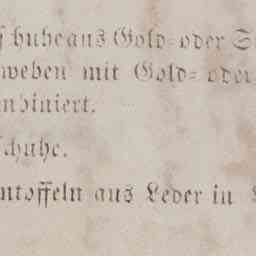 huhe aus Gold- oder
weben mit Gold- oder
mbiniert.
schuhe.
ntoffeln aus Leder in